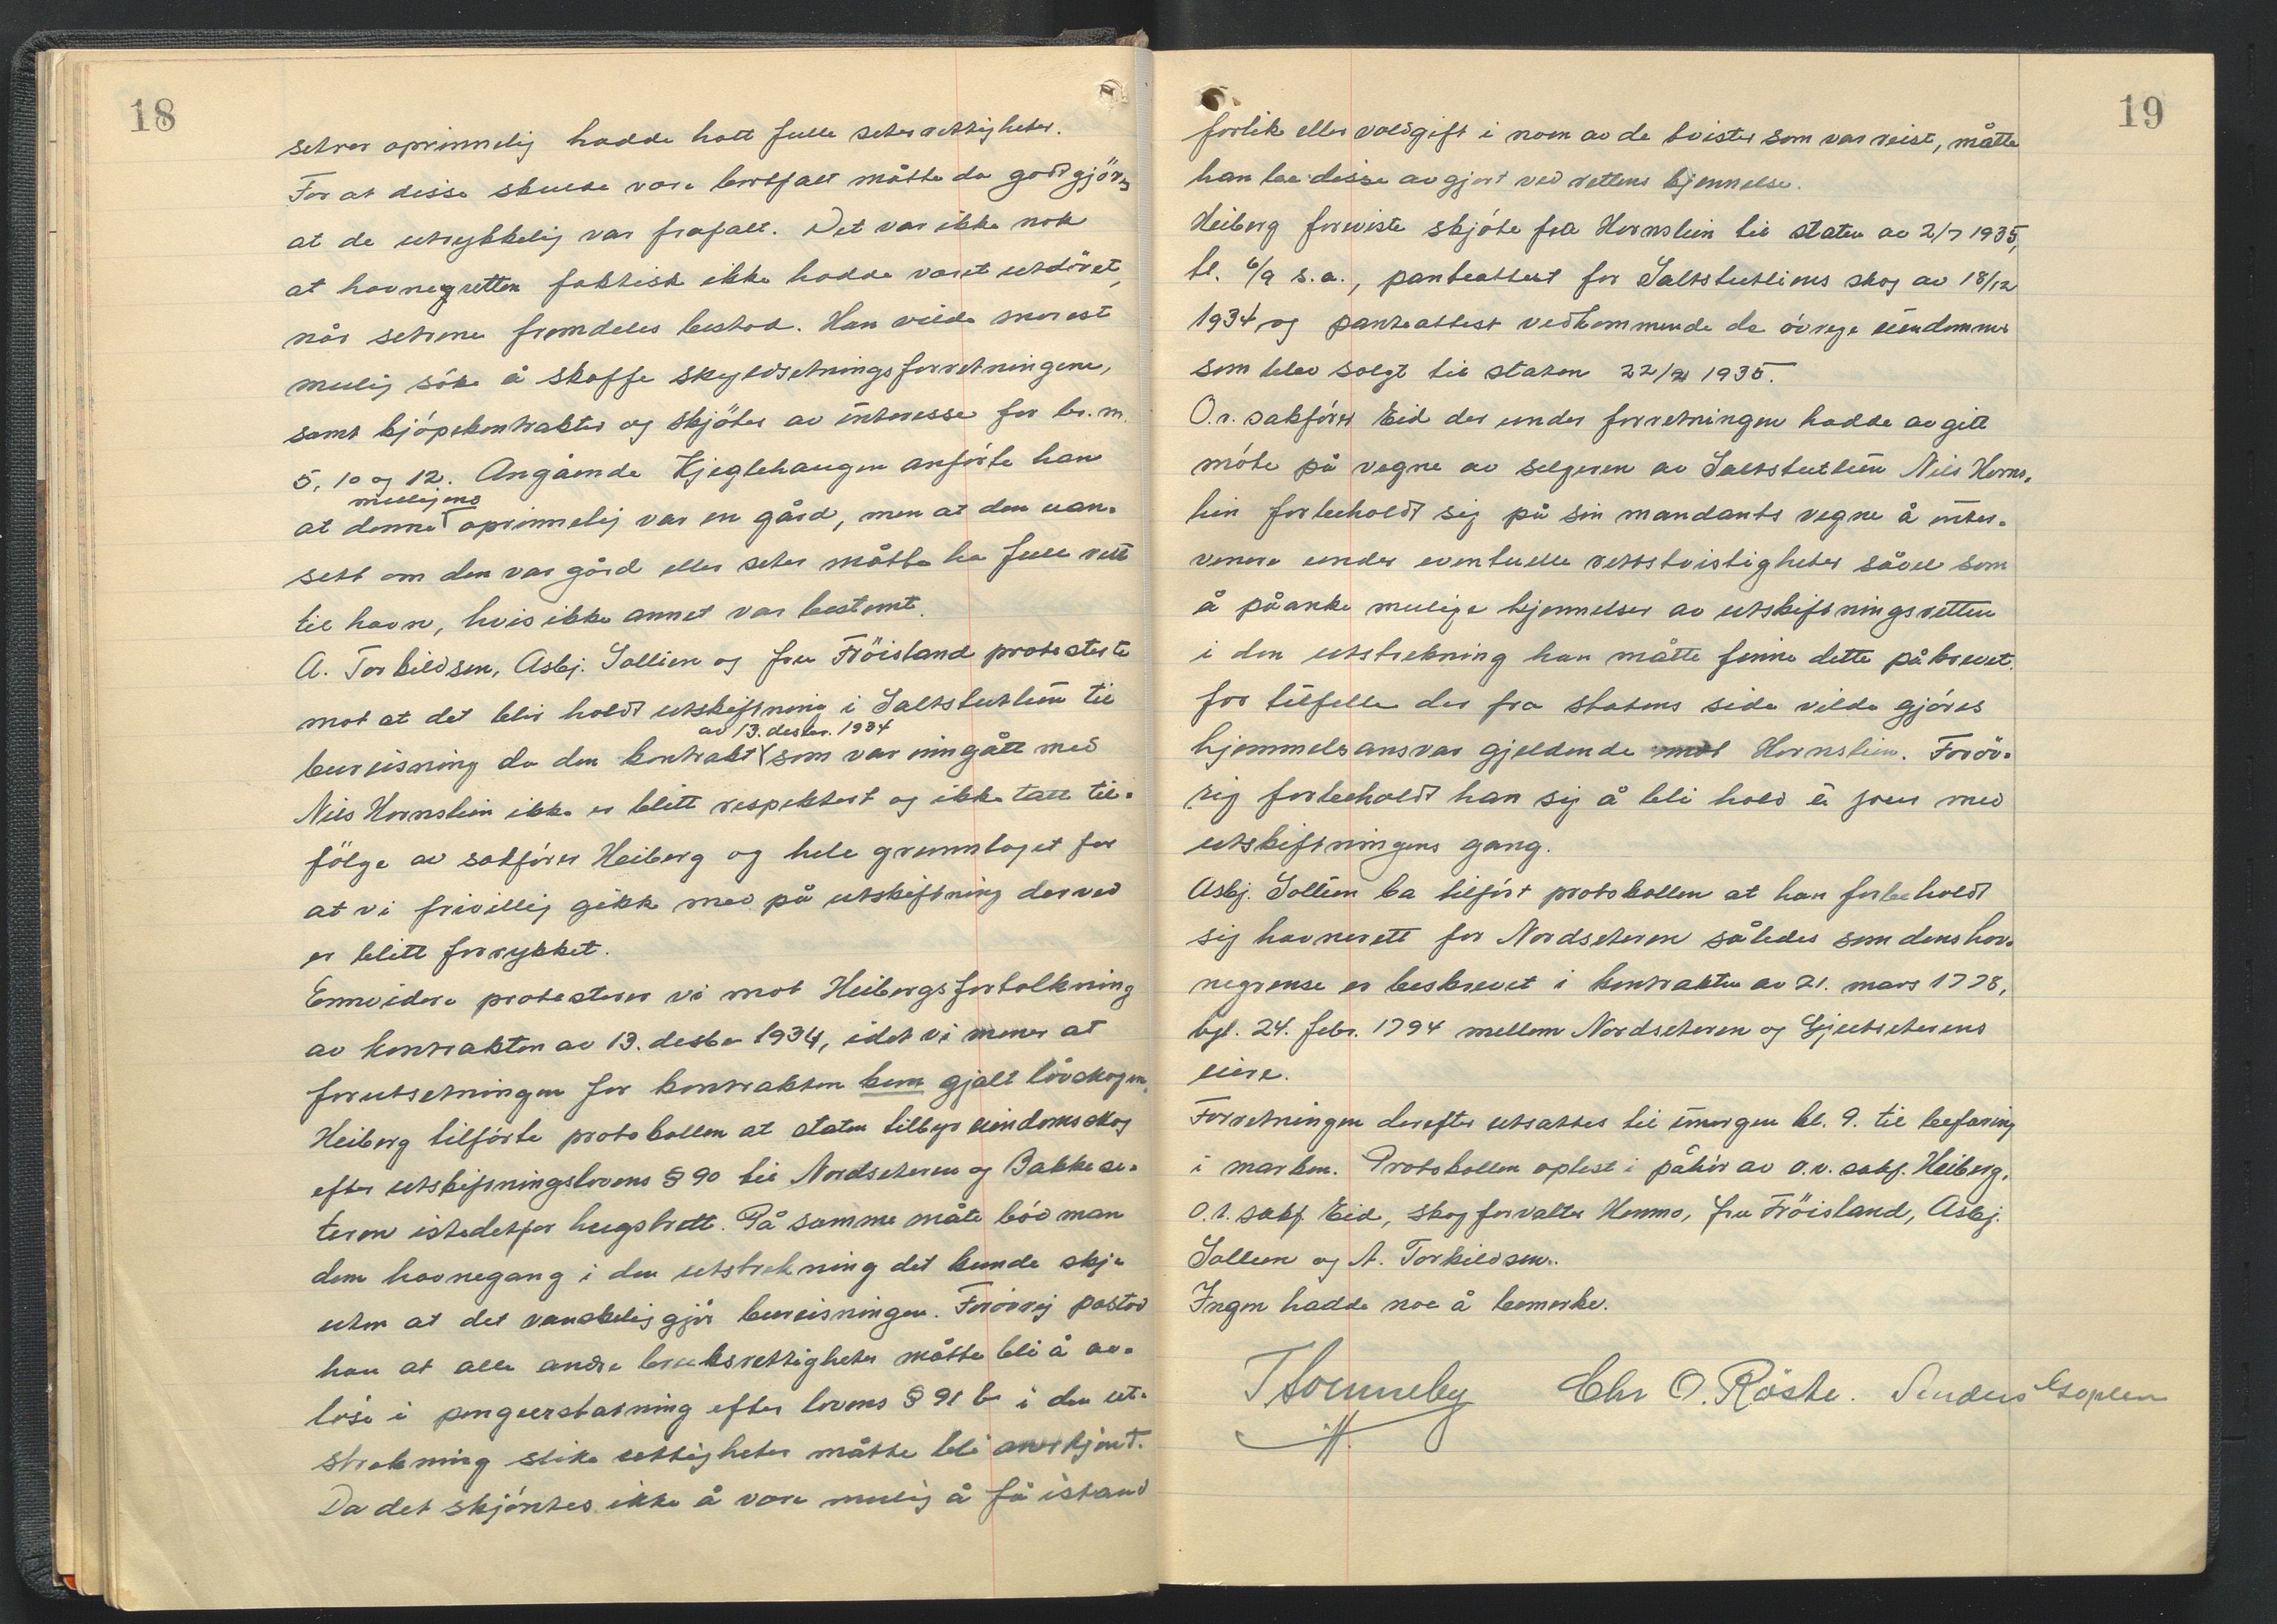 18
setrer oprinnelig hadde hatt fulle seterrettigheter.
For at disse skulde være bortfalt måtte da godtgjöres
at de utrykkelig var frafalt. Det var ikke nok
at havneretten faktisk ikke hadde været utövet,
når setrene fremdeles bestod. Han vilde snarest
mulig söke å skaffe skyldsetningsforretningene,
samt kjöpekontrakter og skjöter av interesse for br. nr.
5, 10 og 12. Angående Kjeglehaugen anförte han
muligens
at denne oprinnelig var en gård, men at den uan-
sett om den var gård eller seter måtte ha full rett
til havn, hvis ikke annet var bestemt.
A. Torkildsen, Asbj. Sollien og fru Fröisland protesterte
mot at det blir holdt utskiftning i Saltstutlien til
av 13. desbr. 1934
bureisning da den kontrakt som var inngått med
Nils Hornslien ikke er blitt respektert og ikke tatt til-
fölge av sakförer Heiberg og hele grunnlaget for
at vi frivillig gikk med på utskiftning derved
er blitt forrykket.
Ennvidere protesterer vi mot Heibergs fortolkning
av kontrakten av 13. desbr 1934, idet vi mener at
forutsetningen for kontrakten kun gjalt lövskogen.
Heiberg tilförte protokollen at staten tilbyr eiendomsskog
efter utskiftningslovens § 90 til Nordseteren og Bakkese-
teren istedetfor hugstrett. På samme måte böd man
dem havnegang i den utstrekning det kunde skje
uten at det vanskeliggjör bureisningen. Forövrig påstod
han at alle andre bruksrettigheter måtte bli å av-
löse i pengeerstatning efter lovens § 91 b i den ut-
strekning slike rettigheter måtte bli anerkjent.
Da det skjöntes ikke å være mulig å få istand
19
forlik eller voldgift i noen av de tvister som var reist, måtte
han be disse avgjort ved rettens kjennelse.
Heiberg foreviste skjöte fra Hornslien til staten av 2/7 1935,
tl. 6/9 s.a., panteattest for Saltstutliens skog av 18/12
1934 og panteattest vedkommende de övrige eiendommer
som blev solgt til staten 22/2 1935.
O.r. sakförer Eid der under forretningen hadde avgitt
möte på vegne av selgeren av Saltstutlien Nils Horns-
lien forbeholdt sig på sin mandants vegne å inter-
venere under eventuelle rettstvistigheter såvel som
å påanke mulige kjennelser av utskiftningsretten
i den utstrekning han måtte finne dette påkrevet
for tilfelle der fra statens side vilde gjöres
hjemmelsansvar gjeldende mot Hornslien. Foröv-
rig forbeholdt han sig å bli hold à jour med
utskiftningens gang.
Asbj. Sollien ba tilfört protokollen at han forbeholdt
sig havnerett for Nordseteren således som dens hav-
negrense er beskrevet i kontrakten av 21. mars 1778,
tgl. 24. febr. 1794 mellem Nordseteren og Gjeitseterens
eiere.
Forretningen derefter utsattes til imorgen kl. 9. til befaring
i marken. Protokollen oplest i påhör av o.r. sakf. Heiberg,
o.r. sakf. Eid, skogforvalter Hommo, fru Fröisland, Asbj.
Sollien og A. Torkildsen.
Ingen hadde noe å bemerke.
Chr O. Röste.